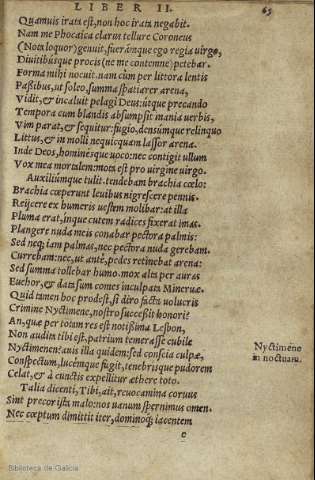 LIBER II.
65
Quamuis irata est, non hoc irata negabit.
Nam me Phocaica clarus tellure Coroneus
(Nota loquor) genuit, fuerámque ego regia uirgo,
Diuitibúsque procis (ne me contemne) petebar.
Forma mihi nocuit. nam cùm per littora lentis
Passibus, ut soleo, summa spatiarer arena,
Vidit, & incaluit pelagi Deus: útque precando
Tempora cum blandis absumpsit inania uerbis,
Vim parat, & sequitur: fugio, densúmque relinquo
Littus, & in molli nequicquam lassor arena.
Inde Deos, hominésque uoco: nec contigit ullum
Vox mea mortalem: mota est pro uirgine uirgo.
Auxiliúmque tulit. tendebam brachia cœlo:
Brachia cœperunt leuibus nigrescere pennis.
Reijcere ex humeris uestem molibar: at illa
Pluma erat, inque cutem radices fixerat imas.
Plangere nuda meis conabar pectora palmis:
Sed neq; iam palmas, nec pectora nuda gerebam.
Currebam: nec, ut antè, pedes retinebat arena:
Sed summa tollebar humo. mox alta per auras
Euehor, & data sum comes inculpata Mineruæ.
Quid tamen hoc prodest, si diro facta uolucris
Crimine Nyctimene, nostro successit honori?
An, quæ per totam res est notissima Lesbon,
Non audita tibi est, patrium temerasse cubile
Nyctimenen? auis illa quidem: sed conscia culpæ,
Conspectum, lucémque fugit, tenebrisque pudorem
Celat, & à cunctis expellitur æthere toto.
Talia dicenti, Tibi, ait, reuocamina coruus
Sint precor ista malo: nos uanum spernimus omen.
Nec cœptum dimittit iter, dominoq; iacentem
Nyctimene
in noctuam.
e
Biblioteca de Galicia